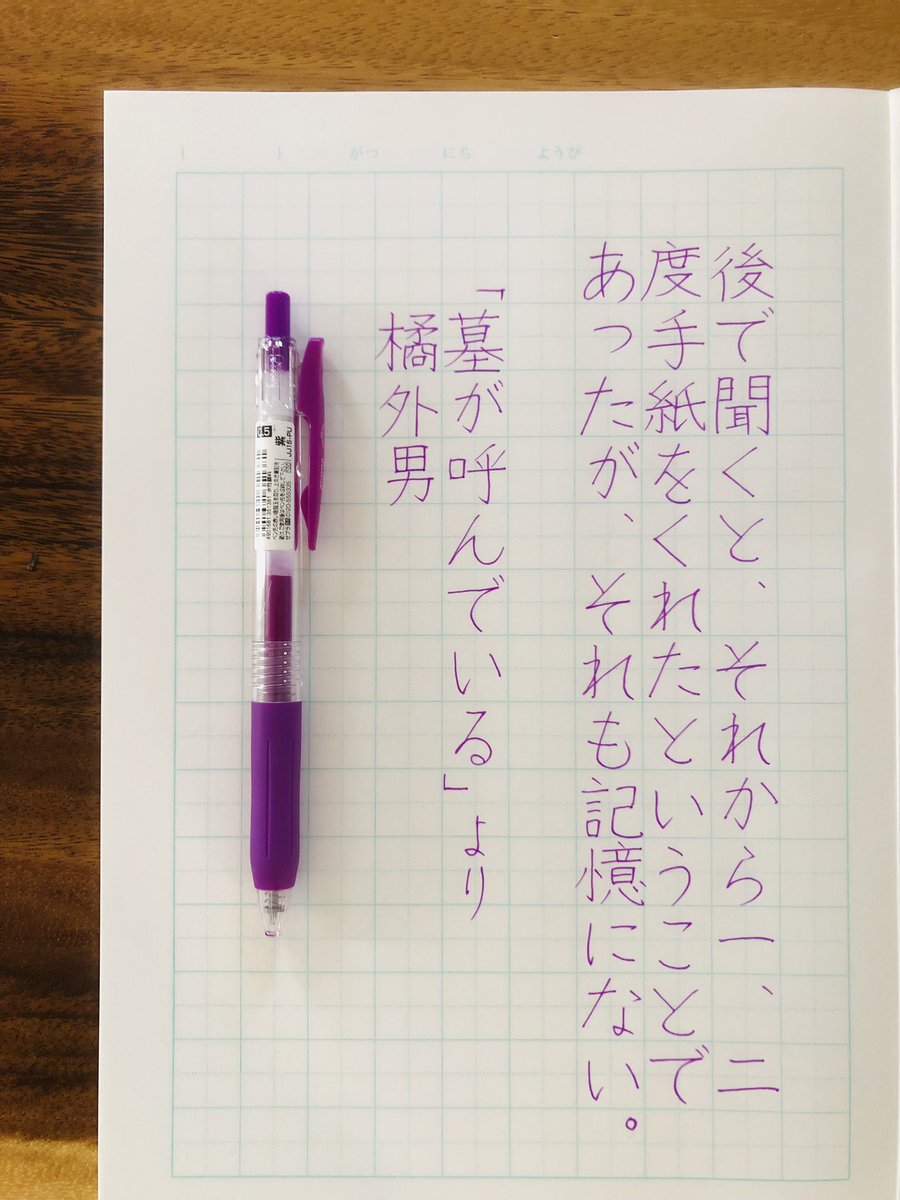 （　　　）　　がつ　　にち　　ようび
後で聞くと、それから一、二
度手紙をくれたということで
あったが、それも記憶にない。
「墓が呼んでいる」より
橘外男
紫
JJ15-PU